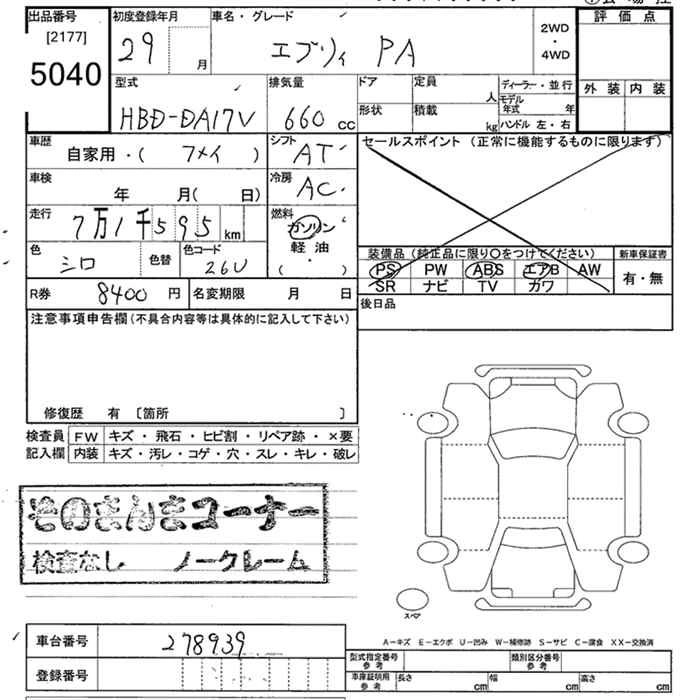 出品番号
[2177]
5040
初度登録年月
29 月
車名・グレード
エブリィ PA
2WD
・
4WD
評価点
外装 内装
型式
HBD-DA17V
排気量
660 cc
ドア
定員 人
形状
積載 kg
ディーラー・並行
モデル年式 年
ハンドル 左・右
車歴
自家用・( )
シフト
AT
セールスポイント (正常に機能するものに限ります)
車検
年 月( 日)
冷房
AC
走行
7万1千595 km
燃料
ガソリン
軽油
( ・ )
色
シロ
色替
色コード
26U
装備品 (純正品に限り○をつけてください)
新車保証書
PS PW ABS エアB AW
SR ナビ TV カワ
有・無
R券 8400 円
名変期限 月 日
後日品
注意事項申告欄(不具合内容等は具体的に記入して下さい)
修復歴 有 〔箇所 〕
検査員 FW キズ・飛石・ヒビ割・リペア跡・×要
記入欄 内装 キズ・汚レ・コゲ・穴・スレ・キレ・破レ
そのまんまコーナー
検査なし ノークレーム
スペア
A-キズ E-エクボ U-凹み W-補修跡 S-サビ C-腐食 XX-交換済
車台番号 278939
登録番号
型式指定番号 参考
類別区分番号 参考
車庫証明用 参考
長さ cm
幅 cm
高さ cm